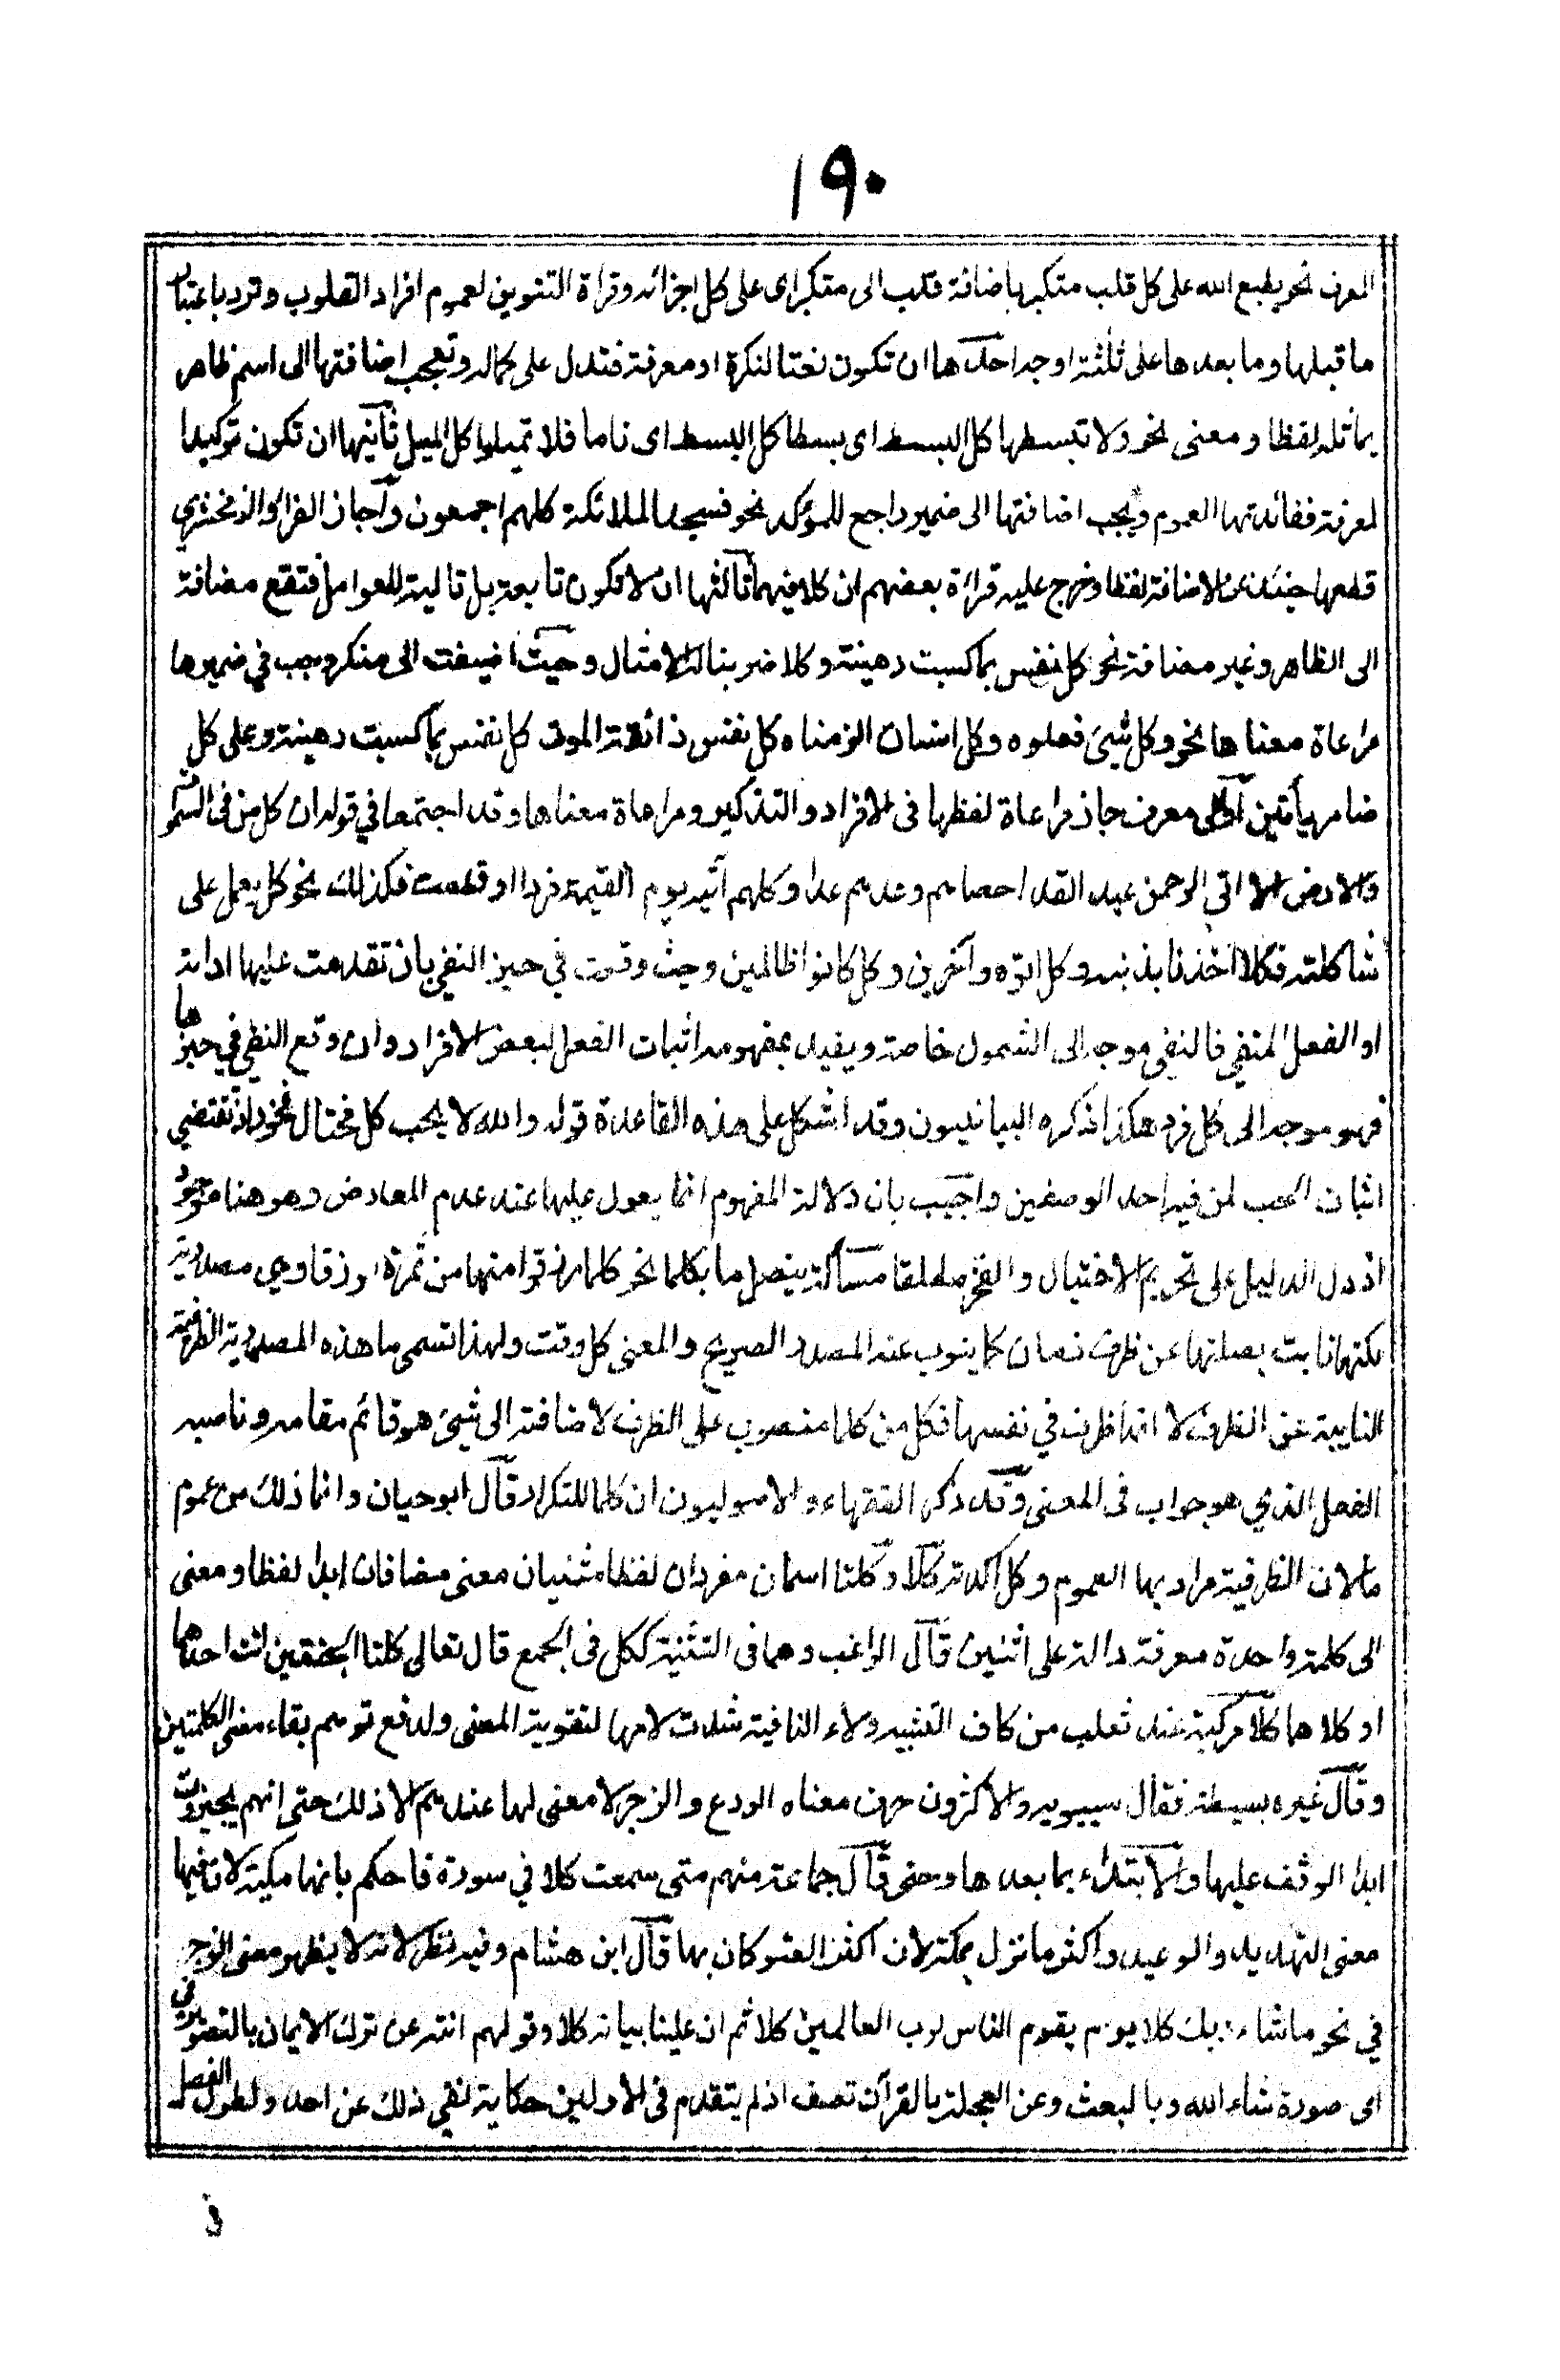 ١٩٠
المعرف نحو يطبع الله على كل قلب متكبر باضافة قلب الى متكبر اى على كل اجزائه وقراة التنوين لعموم افراد القلوب وترد باعتبار
ما قبلها وما بعدها على ثلثة اوجه احدها ان تكون نعتا لنكرة او معرفة فتدل على كماله وتجب اضافتها الى اسم ظاهر
يماثله لفظا ومعنى نحو ولا تبسطها كل البسط اى بسطا كل البسط اى تاما فلا تميلوا كل الميل ثانيها ان تكون توكيدا
لمعرفة ففائدتها العموم ويجب اضافتها الى ضمير راجع للمؤكد نحو فسجد الملائكة كلهم اجمعون واجاز الفراء والزمخشري
قطعها حينئذ عن الاضافة لفظا وخرج عليه قراءة بعضهم ان كلا فيها ثالثها ان لا تكون تابعة بل تالية للعوامل فتقع مضافة
الى الظاهر وغير مضافة نحو كل نفس بما كسبت رهينة وكلا ضربنا له الامثال وحيث اضيفت الى منكر وجب في ضميرها
مراعاة معناها نحو وكل شيئ فعلوه وكل انسان الزمناه كل نفس ذائقة الموت كل نفس بما كسبت رهينة وعلى كل
ضامر يأتين او الى معرف جاز مراعاة لفظها في الافراد والتذكير ومراعاة معناها وقد اجتمعا في قوله ان كل من في السمو
والارض الا اتي الرحمن عبدا لقد احصاهم وعدهم عدا وكلهم آتيه يوم القيمة فردا او قطعت فكذلك نحو كل يعمل على
شاكلته فكلا اخذنا بذنبه وكل اتوه وآخرين وكل كانوا ظالمين وحيث وقعت في حيز النفي بان تقدمت عليها اداته
او الفعل المنفي فالنفي موجه الى الشمول خاصة ويفيد بمفهومه اثبات الفعل لبعض الافراد وان وقع النفي في حيزها
فهو موجه الى كل فرد هكذا ذكره البيانيون وقد اشكل على هذه القاعدة قوله والله لا يحب كل مختال فخور اذ تقتضي
اثبات الحب لمن فيه احد الوصفين واجيب بان دلالة المفهوم انما يعول عليها عند عدم المعارض وهو هنا موجود
اذ دل الدليل على تحريم الاختيال والفخر مطلقا مسألة يتصل ما بكل نحو كلما رزقوا منها من ثمرة رزقا وهي مصدرية
لكنها نابت بصلتها عن ظرف زمان كما ينوب عنه المصدر الصريح والمعنى كل وقت ولهذا تسمى ما هذه المصدرية الظرفية
النايبة عن الظرف لا انها ظرف في نفسها فكل من كلما منصوب على الظرف لاضافته الى شيئ هو قائم مقامه وناصبه
الفعل الذي هو جواب في المعنى وقد ذكر الفقهاء والاصوليون ان كلما للتكرار قال ابوحيان وانما ذلك من عموم
ما لان الظرفية مراد بها العموم وكل اكدته كلا وكلتا اسمان مفردان لفظا مثنيان معنى مضافان ابدا لفظا ومعنى
الى كلمة واحدة معرفة دالة على اثنين قال الراغب وهما في التثنية ككل في الجمع قال تعالى كلتا الجنتين اتت احدهما
او كلاهما كلا مركبة عند ثعلب من كاف التشبيه ولاء النافية شددت لامها لتقوية المعنى ولدفع توهم بقاء معنى الكلمتين
وقال غيره بسيطة فقال سيبويه والاكثرون حرف معناه الردع والزجر لا معنى لها عندهم الا ذلك حتى انهم يجيزون
ابدا الوقف عليها والابتداء بما بعدها وحتى قال جماعة منهم متى سمعت كلا في سورة فاحكم بانها مكية لان فيها
معنى التهديد والوعيد واكثر ما نزل بمكة لان اكثر العتو كان بها قال ابن هشام وفيه نظر لانه لا يظهر معنى الزجر
في نحو ما شاء ربك كلا يوم يقوم الناس لرب العالمين كلا ثم ان علينا بيانه كلا وقولهم انته عن ترك الايمان بالتصوير في
اى صورة شاء الله وبالبعث وعن العجلة بالقرآن تعسف اذ لم يتقدم في الاولين حكاية نفي ذلك عن احد ولطول الفصل